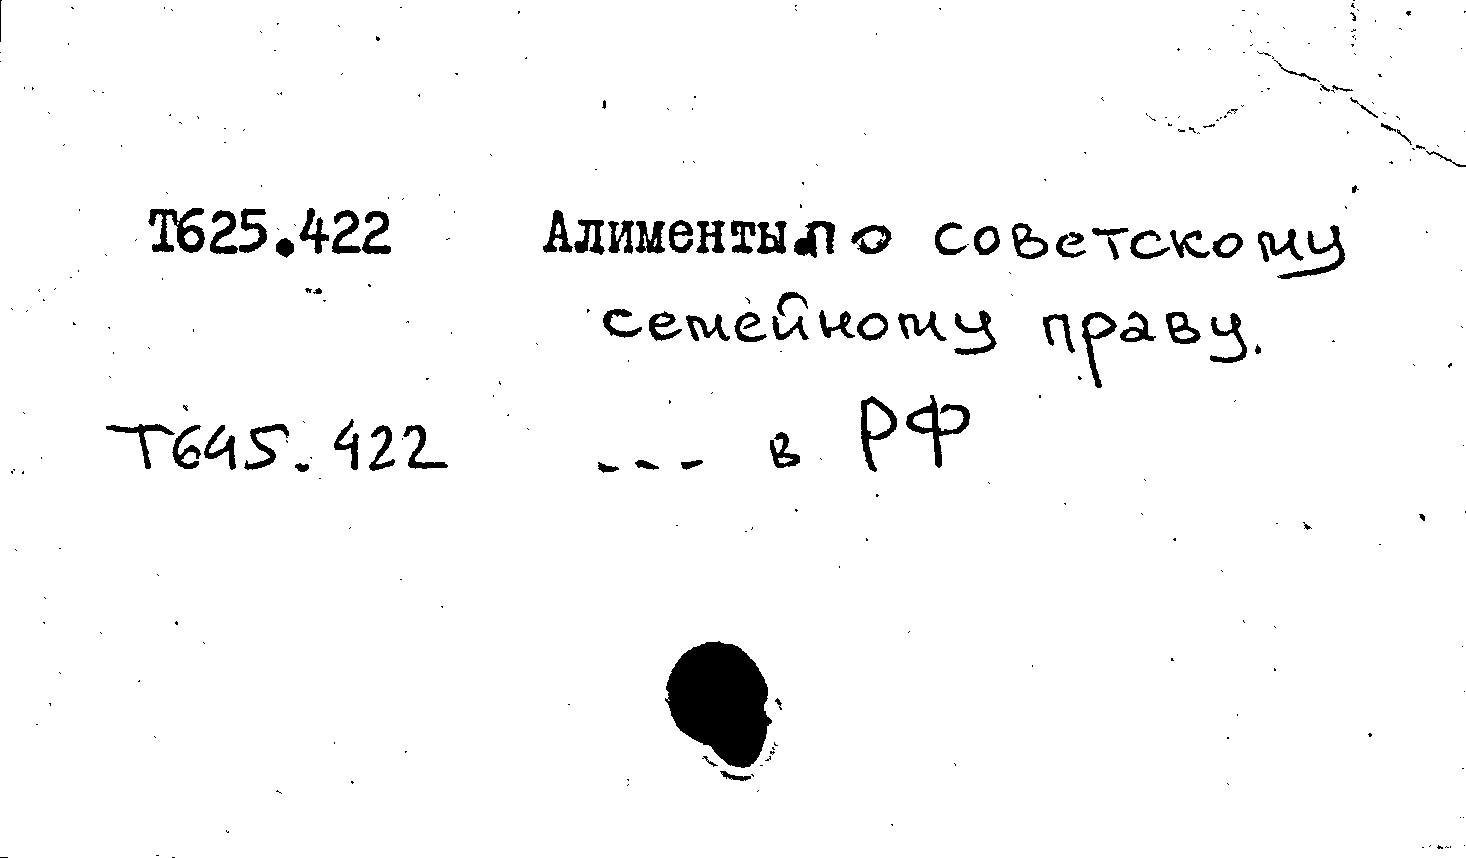 Т625.422 Алименты по советскому
семейному праву.
Т645.422 --- в РФ